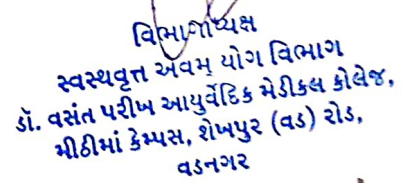 વિભાગાધ્યક્ષ
સ્વસ્થવૃત્ત એવમ્ યોગ વિભાગ
ડૉ. વસંત પરીખ આયુર્વેદિક મેડીકલ કોલેજ,
મીઠીમાં કેમ્પસ, શેખપુર (વડ) રોડ,
વડનગર